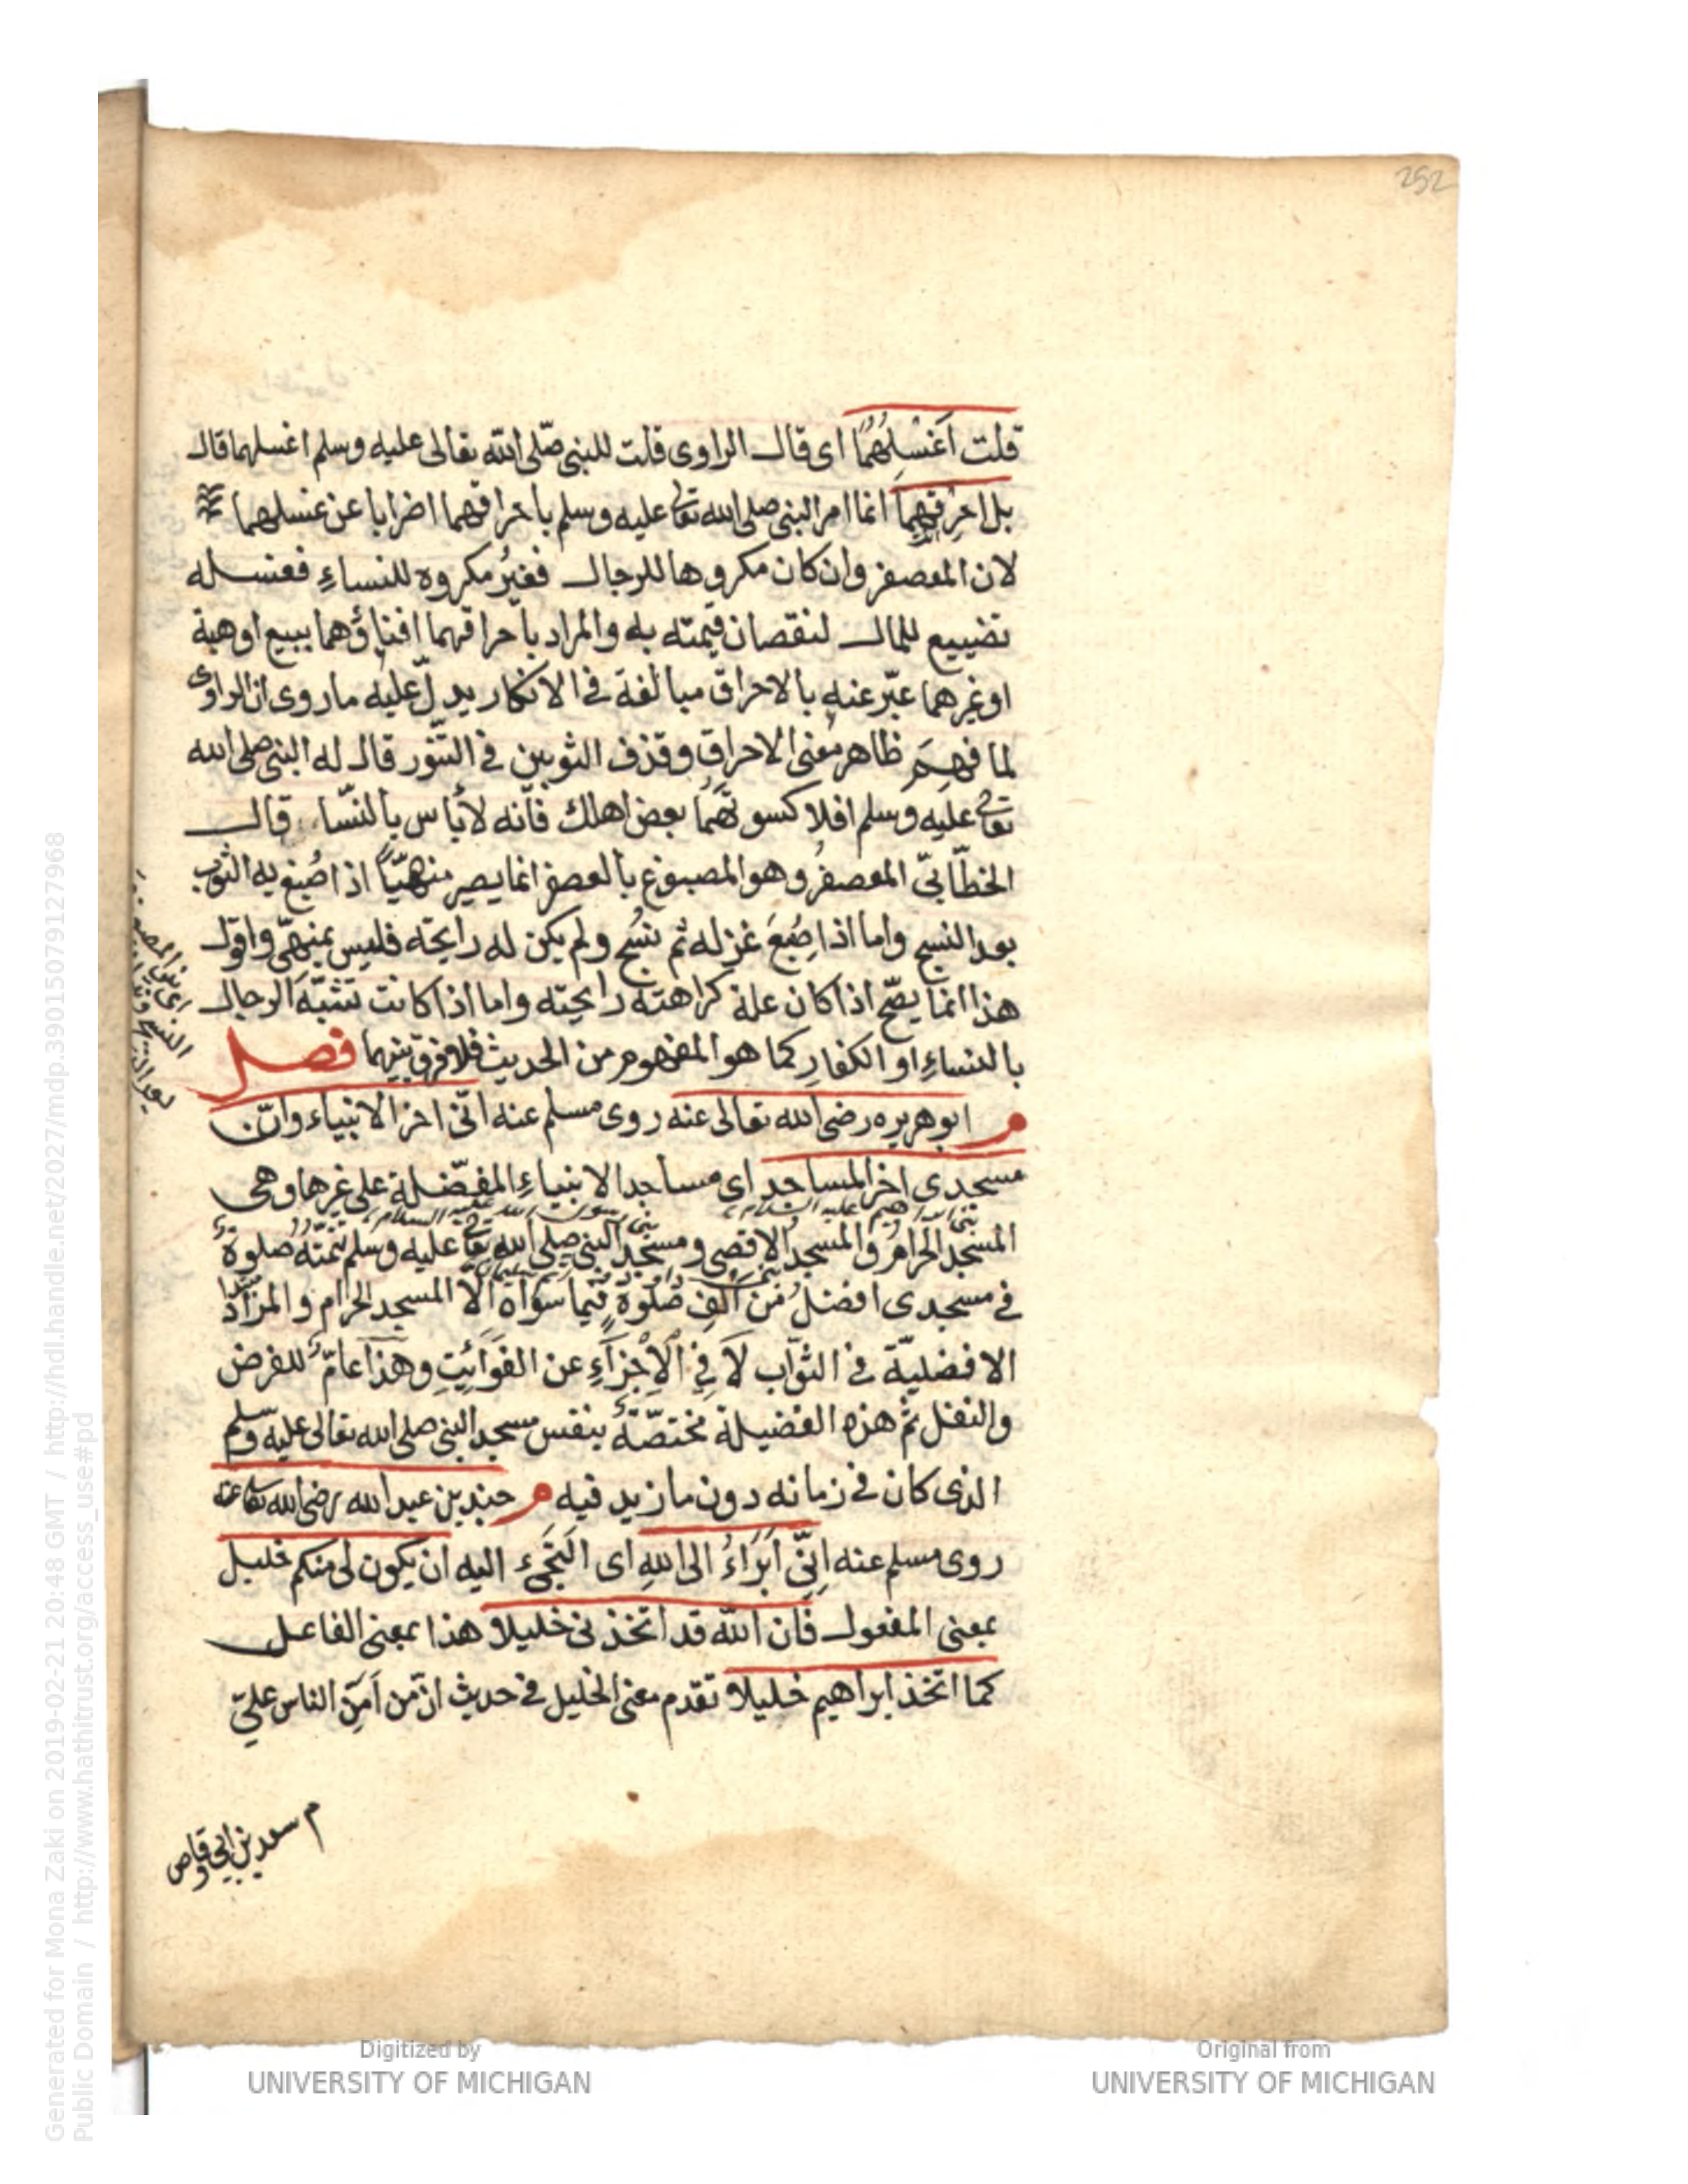 252
قلت اَغْسِلُهُمَا اى قال الراوى قلت للنبى صلّى الله تعالى عليه وسلم اغسلهما قال
بل احرِقهما انما امر النبى صلى الله تعالى عليه وسلم باحراقهما اضرابا عن غسلهما
لان المعصفر وان كان مكروها للرجال فغيرُ مكروه للنساءِ فغسله
تضييع للمال لنقصان قيمته به والمراد باحراقهما افناؤهما ببيع او هبة
او غيرهما عبّر عنه بالاحراق مبالغة فى الانكار يدلّ عليه ما روى ان الراوى
لما فهِمَ ظاهر معنى الاحراق وقذف الثوبين فى التنّور قال له النبى صلى الله
تعالى عليه وسلم افلا كسوتهما بعض اهلك فانه لا باس بالنّسا قال
الخطّابىّ المعصفرُ وهو المصبوغ بالعصفر انما يصير منهيّاً اذا صُبغ به الثوب
بعد النسج واما اذا صُبغَ غزله ثم نُسج ولم يكن له رايحته فليس بمنهىّ واقول
هذا انما يصّح اذا كان علة كراهته رايحته واما اذا كانت تشبّهَ الرجال
بالنساءِ او الكفارِ كما هو المفهوم من الحديث فلا فرق بينهما فصل
م ابو هريره رضى الله تعالى عنه روى مسلم عنه انّى اخر الانبياء وانّ
مسجدى اخر المساجد اى مساجد الانبياءِ المفضّلة على غيرها وهى
المسجد الحرامُ والمسجد الاقصى ومسجد النبى صلى الله تعالى عليه وسلم تتمّتهُ صلوةٌ
فى مسجدى افضلُ من الفِ صلوةٍ فيما سواه الّا المسجد الحرام والمراد
الافضليّة فى الثوّاب لَا فِى الْاِجْزَآءِ عن الفَوَائِتِ وهذا عامّ للفرض
والنفل ثم هذه الفضيلة مختصّةٌ بنفس مسجد النبى صلى الله تعالى عليه وسلم
الذى كان فى زمانه دون ما زيد فيه م جندب بن عبد الله رضى الله تعالى عنه
روى مسلم عنه اِنّى اَبَرَاءُ الى اللهِ اى اَلتَجِىء اليه ان يكون لى منكم خليل
بمعنى المفعول فان الله قد اتخذنى خليلاً هذا بمعنى الفاعل
كما اتخذ ابراهيم خليلاً تقدم معنى الخليل فى حديث انّ من اَمَنِّ الناس علىّ
م سعد بن ابى وقاص
Digitized by
UNIVERSITY OF MICHIGAN
Original from
UNIVERSITY OF MICHIGAN
Generated for Mona Zaki on 2019-02-21 20:48 GMT / http://hdl.handle.net/2027/mdp.39015079127968
Public Domain / http://www.hathitrust.org/access_use#pd